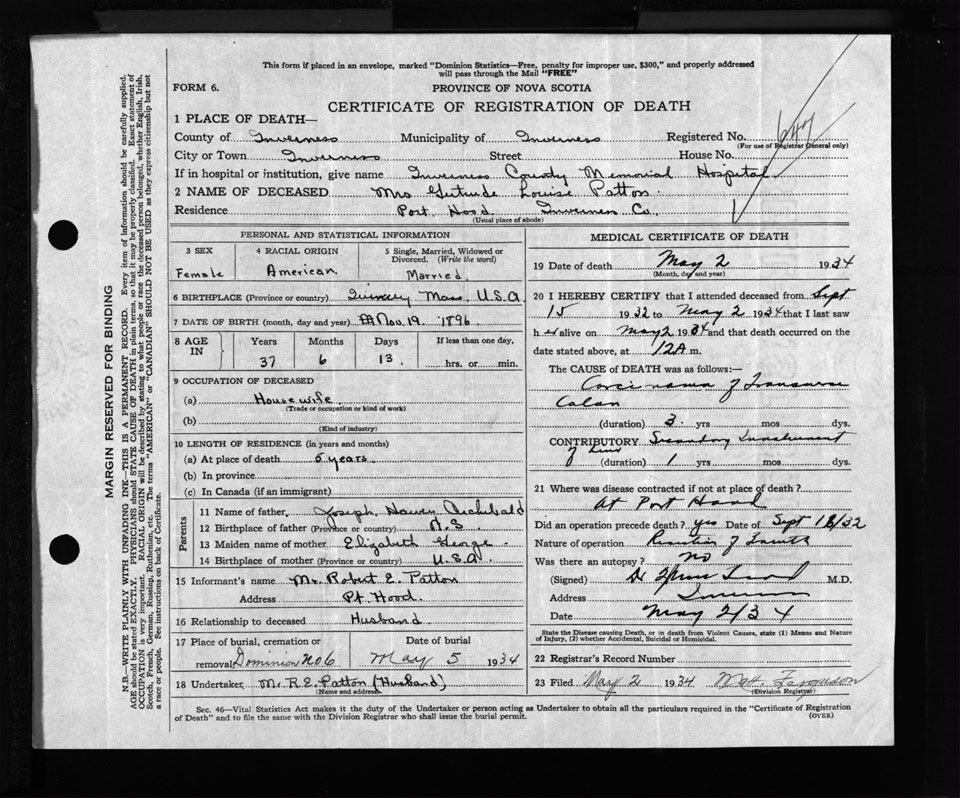 This form if placed in an envelope, marked "Dominion Statistics—Free, penalty for improper use, $300," and properly addressed
will pass through the Mail "FREE"
FORM 6.
PROVINCE OF NOVA SCOTIA
CERTIFICATE OF REGISTRATION OF DEATH
1 PLACE OF DEATH—
County of Inverness Municipality of Inverness Registered No.
(For use of Registrar General only)
City or Town Inverness Street House No.
If in hospital or institution, give name Inverness County Memorial Hospital
2 NAME OF DECEASED Mrs Gertrude Louise Patton
Residence Port Hood Inverness Co.
(Usual place of abode)
PERSONAL AND STATISTICAL INFORMATION
3 SEX
Female
4 RACIAL ORIGIN
American
5 Single, Married, Widowed or
Divorced. (Write the word)
Married
6 BIRTHPLACE (Province or country) Quincy Mass. U.S.A.
7 DATE OF BIRTH (month, day and year) Nov. 19. 1896
8 AGE
IN
Years
37
Months
6
Days
13
If less than one day,
hrs. or min.
9 OCCUPATION OF DECEASED
(a) Housewife
(Trade or occupation or kind of work)
(b)
(Kind of industry)
10 LENGTH OF RESIDENCE (in years and months)
(a) At place of death 5 years
(b) In province
(c) In Canada (if an immigrant)
Parents
11 Name of father, Joseph Archibald
12 Birthplace of father (Province or country) N.S
13 Maiden name of mother Elizabeth George
14 Birthplace of mother (Province or country) U.S.A.
15 Informant's name Mr. Robert E. Patton
Address Pt. Hood.
16 Relationship to deceased Husband
17 Place of burial, cremation or
removal Dominion No 6
Date of burial
May 5 1934
18 Undertaker Mr. R.E. Patton (Husband)
(Name and address)
MEDICAL CERTIFICATE OF DEATH
19 Date of death May 2 1934
(Month, day and year)
20 I HEREBY CERTIFY that I attended deceased from Sept
15 1932 to May 2 1934 that I last saw
h er alive on May 2 1934 and that death occurred on
date stated above, at 12A m.
The CAUSE of DEATH was as follows:—
Carcinoma of Transverse
Colon
(duration) 3 yrs mos dys.
CONTRIBUTORY Secondary Involvement
of Liver (duration) 1 yrs mos dys.
21 Where was disease contracted if not at place of death?
At Port Hood
Did an operation precede death? yes Date of Sept 18/32
Nature of operation
Was there an autopsy? No
(Signed) Dr M.D.
Address Inverness
Date May 2/34
State the Disease causing Death, or in death from Violent Causes, state (1) Means and Nature
of Injury, (2) whether Accidental, Suicidal or Homicidal.
22 Registrar's Record Number
23 Filed May 2 1934 Ferguson
(Division Registrar)
Sec. 46—Vital Statistics Act makes it the duty of the Undertaker or person acting as Undertaker to obtain all the particulars required in the "Certificate of Registration
of Death" and to file the same with the Division Registrar who shall issue the burial permit.
(OVER)
MARGIN RESERVED FOR BINDING
N.B.—WRITE PLAINLY WITH UNFADING INK—THIS IS A PERMANENT RECORD. Every item of information should be carefully supplied.
AGE should be stated EXACTLY. PHYSICIANS should STATE CAUSE OF DEATH in plain terms, so that it may be properly classified. Exact statement of
OCCUPATION is very important. RACIAL ORIGIN will be described by stating to what people or race the deceased person belonged, whether English, Irish,
Scotch, French, German, Russian, Ruthenian, etc. The terms "AMERICAN" or "CANADIAN" SHOULD NOT BE USED as they express citizenship but not
a race or people. See instructions on back of Certificate.